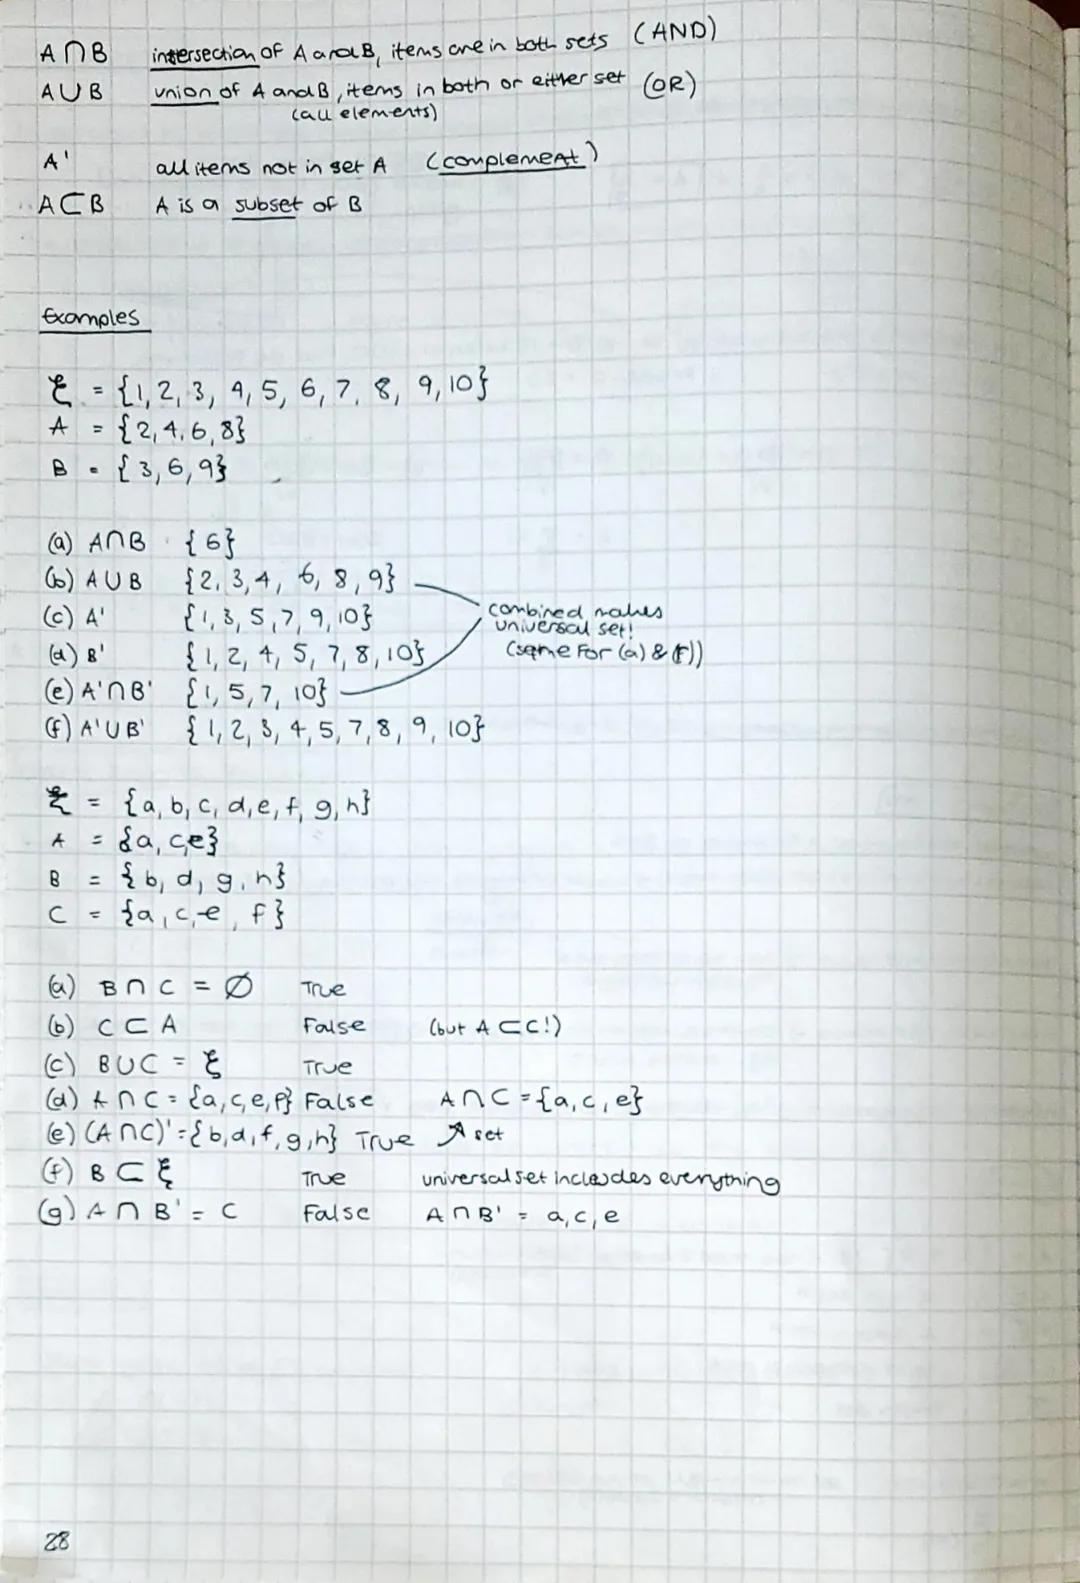 A∩B intersection of A and B, items are in both sets (AND)
A∪B union of A and B, items in both or either set (OR)
(all elements)
A' all items not in set A (complement)
A⊂B A is a subset of B
Examples
ξ = {1, 2, 3, 4, 5, 6, 7, 8, 9, 10}
A = {2, 4, 6, 8}
B = {3, 6, 9}
(a) A∩B {6}
(b) A∪B {2, 3, 4, 6, 8, 9}
(c) A' {1, 3, 5, 7, 9, 10}
combined makes
universal set!
(d) B' {1, 2, 4, 5, 7, 8, 10} (same for (a) & (f))
(e) A'∩B' {1, 5, 7, 10}
(f) A'∪B' {1, 2, 3, 4, 5, 7, 8, 9, 10}
ξ = {a, b, c, d, e, f, g, h}
A = {a, c, e}
B = {b, d, g, h}
C = {a, c, e, f}
(a) B∩C = ∅ True
(b) C⊂A False (but A⊂C!)
(c) B∪C = ξ True
(d) A∩C = {a, c, e, f} False A∩C = {a, c, e}
(e) (A∩C)' = {b, d, f, g, h} True ↗ set
(f) B⊂ξ True universal set includes everything
(g) A∩B' = C False A∩B' = a, c, e
28